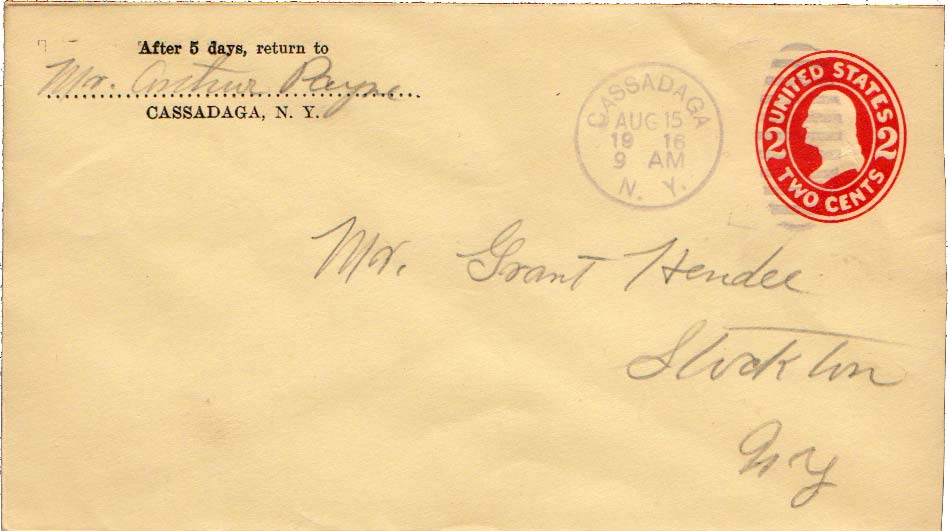 After 5 days, return to
Mr. Arthur Payne
CASSADAGA, N. Y.
CASSADAGA
AUG 15
19 16
9 AM
N. Y.
UNITED STATES
2 2
TWO CENTS
Mr. Grant Hendee
Stockton
N Y